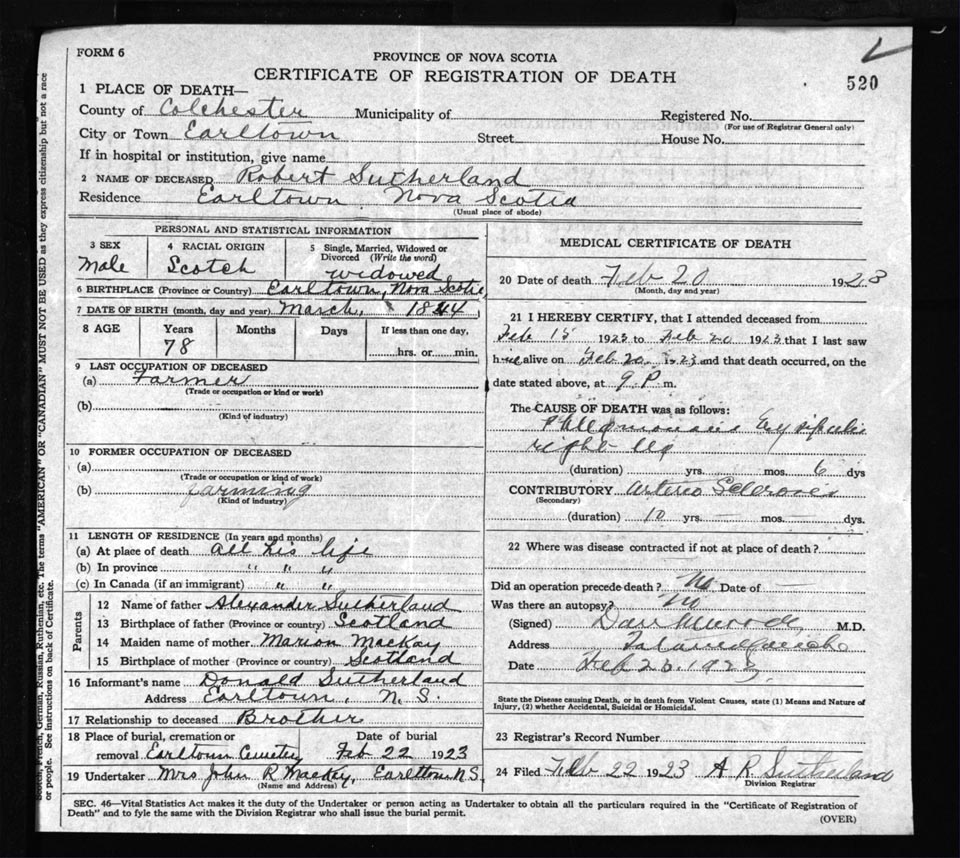 FORM 6
PROVINCE OF NOVA SCOTIA
CERTIFICATE OF REGISTRATION OF DEATH
520
1 PLACE OF DEATH—
County of Colchester Municipality of Registered No.
(For use of Registrar General only)
City or Town Earltown Street House No.
If in hospital or institution, give name
2 NAME OF DECEASED Robert Sutherland
Residence Earltown, Nova Scotia
(Usual place of abode)
PERSONAL AND STATISTICAL INFORMATION
3 SEX
Male
4 RACIAL ORIGIN
Scotch
5 Single, Married, Widowed or
Divorced (Write the word)
widowed
6 BIRTHPLACE (Province or Country) Earltown, Nova Scotia
7 DATE OF BIRTH (month, day and year) March, 1844
8 AGE Years Months Days If less than one day,
78 hrs. or min.
9 LAST OCCUPATION OF DECEASED
(a) Farmer
(Trade or occupation or kind or work)
(b)
(Kind of industry)
10 FORMER OCCUPATION OF DECEASED
(a)
(Trade or occupation or kind of work)
(b) farming
(Kind of industry)
11 LENGTH OF RESIDENCE (In years and months)
(a) At place of death all his life
(b) In province " " "
(c) In Canada (if an immigrant) " "
Parents
12 Name of father Alexander Sutherland
13 Birthplace of father (Province or country) Scotland
14 Maiden name of mother Marion MacKay
15 Birthplace of mother (Province or country) Scotland
16 Informant's name Donald Sutherland
Address Earltown, N. S.
17 Relationship to deceased Brother
18 Place of burial, cremation or Date of burial
removal Earltown Cemetery Feb 22 1923
19 Undertaker Mrs John R Mackay, Earltown N.S.
(Name and Address)
MEDICAL CERTIFICATE OF DEATH
20 Date of death Feb 20 1923
(Month, day and year)
21 I HEREBY CERTIFY, that I attended deceased from
Feb 15 1923 to Feb 20 1923 that I last saw
him alive on Feb 20 1923 and that death occurred, on the
date stated above, at 9 P. m.
The CAUSE OF DEATH was as follows:
right leg
(duration) yrs. mos. 6 dys
CONTRIBUTORY Arterio Sclerosis
(Secondary)
(duration) 10 yrs. — mos. — dys.
22 Where was disease contracted if not at place of death?
Did an operation precede death? No Date of —
Was there an autopsy? No
(Signed) M.D.
Address Tatamagouche
Date Feb 20. 1923
State the Disease causing Death, or in death from Violent Causes, state (1) Means and Nature of
Injury, (2) whether Accidental, Suicidal or Homicidal.
23 Registrar's Record Number
24 Filed Feb 22 1923 A R Sutherland
Division Registrar
SEC. 46—Vital Statistics Act makes it the duty of the Undertaker or person acting as Undertaker to obtain all the particulars required in the "Certificate of Registration of
Death" and to fyle the same with the Division Registrar who shall issue the burial permit.
(OVER)
French, German, Russian, Ruthenian, etc. The terms "AMERICAN" or "CANADIAN" MUST NOT BE USED as they express citizenship but not a race
or people. See instructions on back of Certificate.